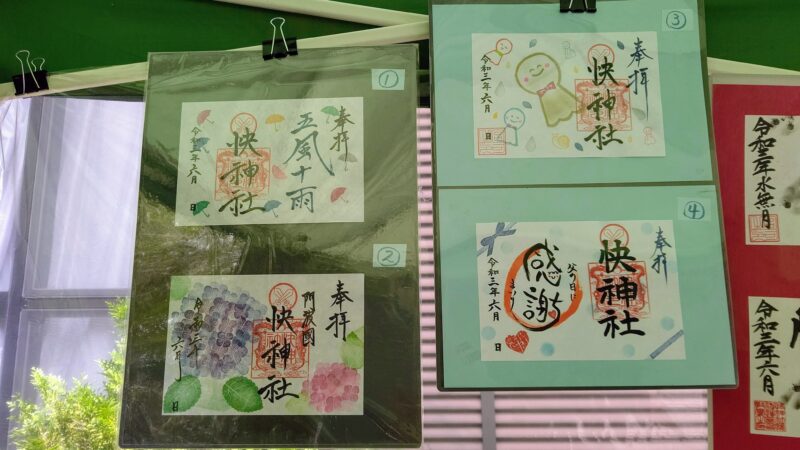 ①
奉拝
五風十雨
快神社
令和三年六月
日
②
奉拝
阿波國
快神社
令和三年
六月
日
③
奉拝
快神社
令和三年六月
日
④
奉拝
快神社
父の日に
感謝
令和三年六月
日
令和三年水無月
令和三年六月